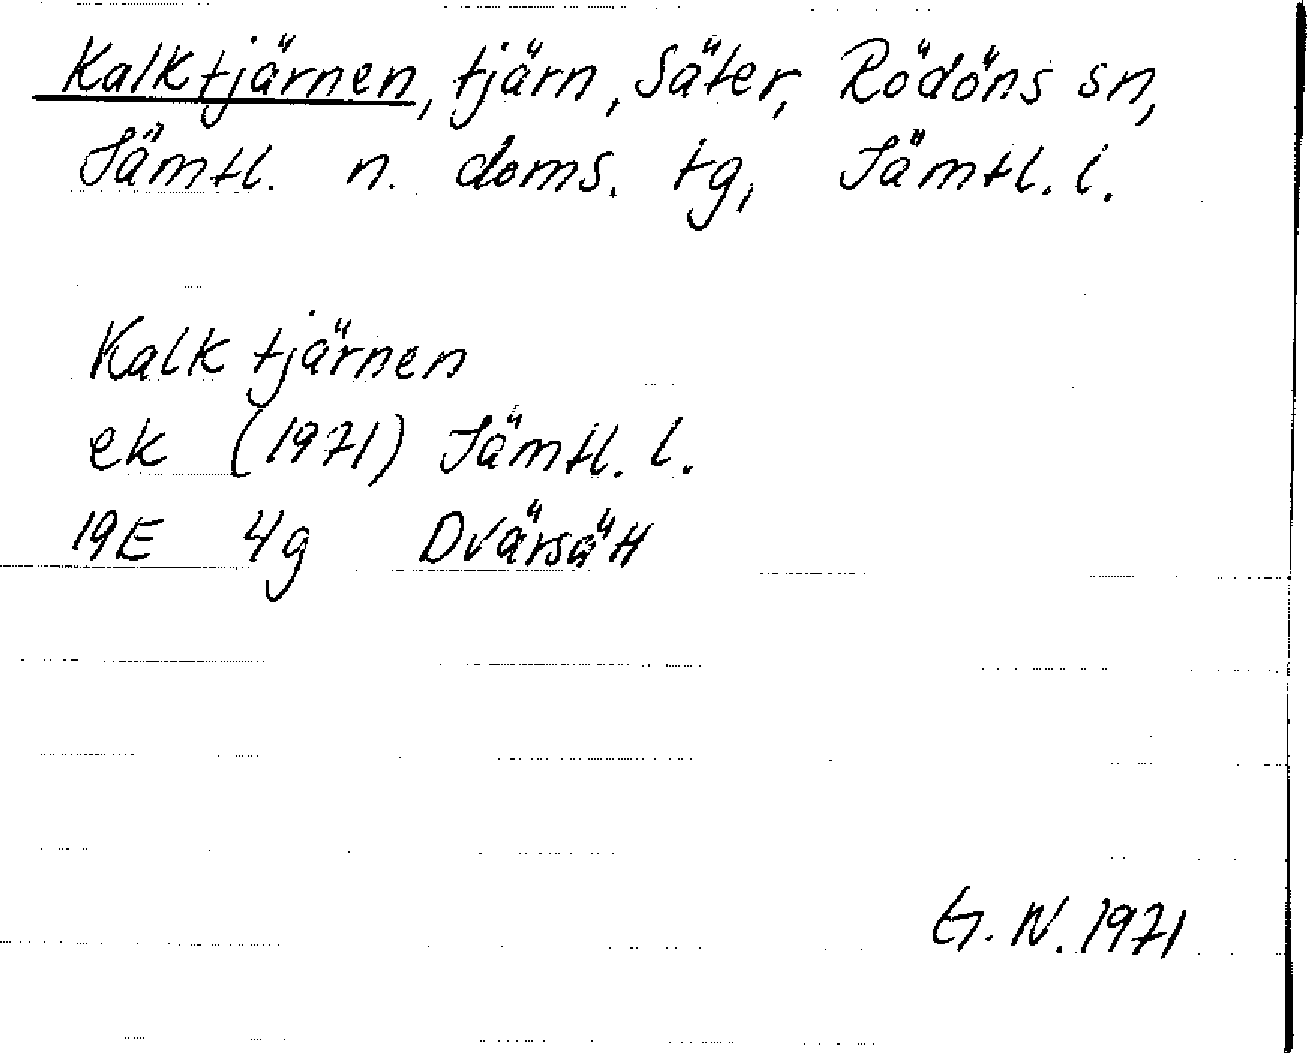 Kalktjärnen, tjärn, Säter, Rödöns sn,
Jämtl. n. doms. tg, Jämtl. l.
Kalktjärnen
ek (1971) Jämtl. l.
19E 4g Dvärsätt
G. N. 1971